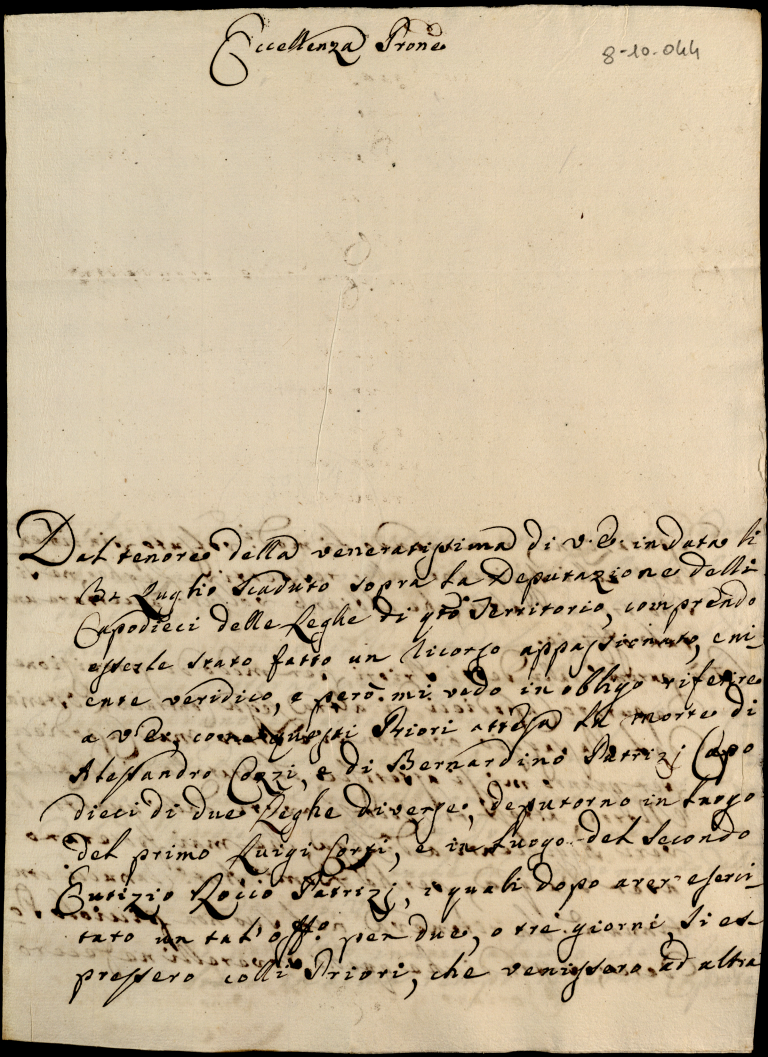 Eccellenza Prone
8-10-044
Dal tenore della veneratissima di V.E. in data li
31 Luglio scaduto sopra la Deputazione delli
Capodieci delle Leghe di qto Territorio, comprendo
esserle stato fatto un ricorso appassionato, e ni-
ente veridico, e però mi vedo in obligo riferire
a V.E., come questi Priori attesa la morte di
Alessandro Corzi, e di Bernardino Patrizj Capo
dieci di due Leghe diverse, deputorno in luogo
del primo Luigi Corzi, e in luogo del secondo
Eutizio Rocco Patrizj, i quali dopo aver eserci-
tato un tal offo. per due, o tre giorni, si es-
pressero colli Priori, che venissero ad altra